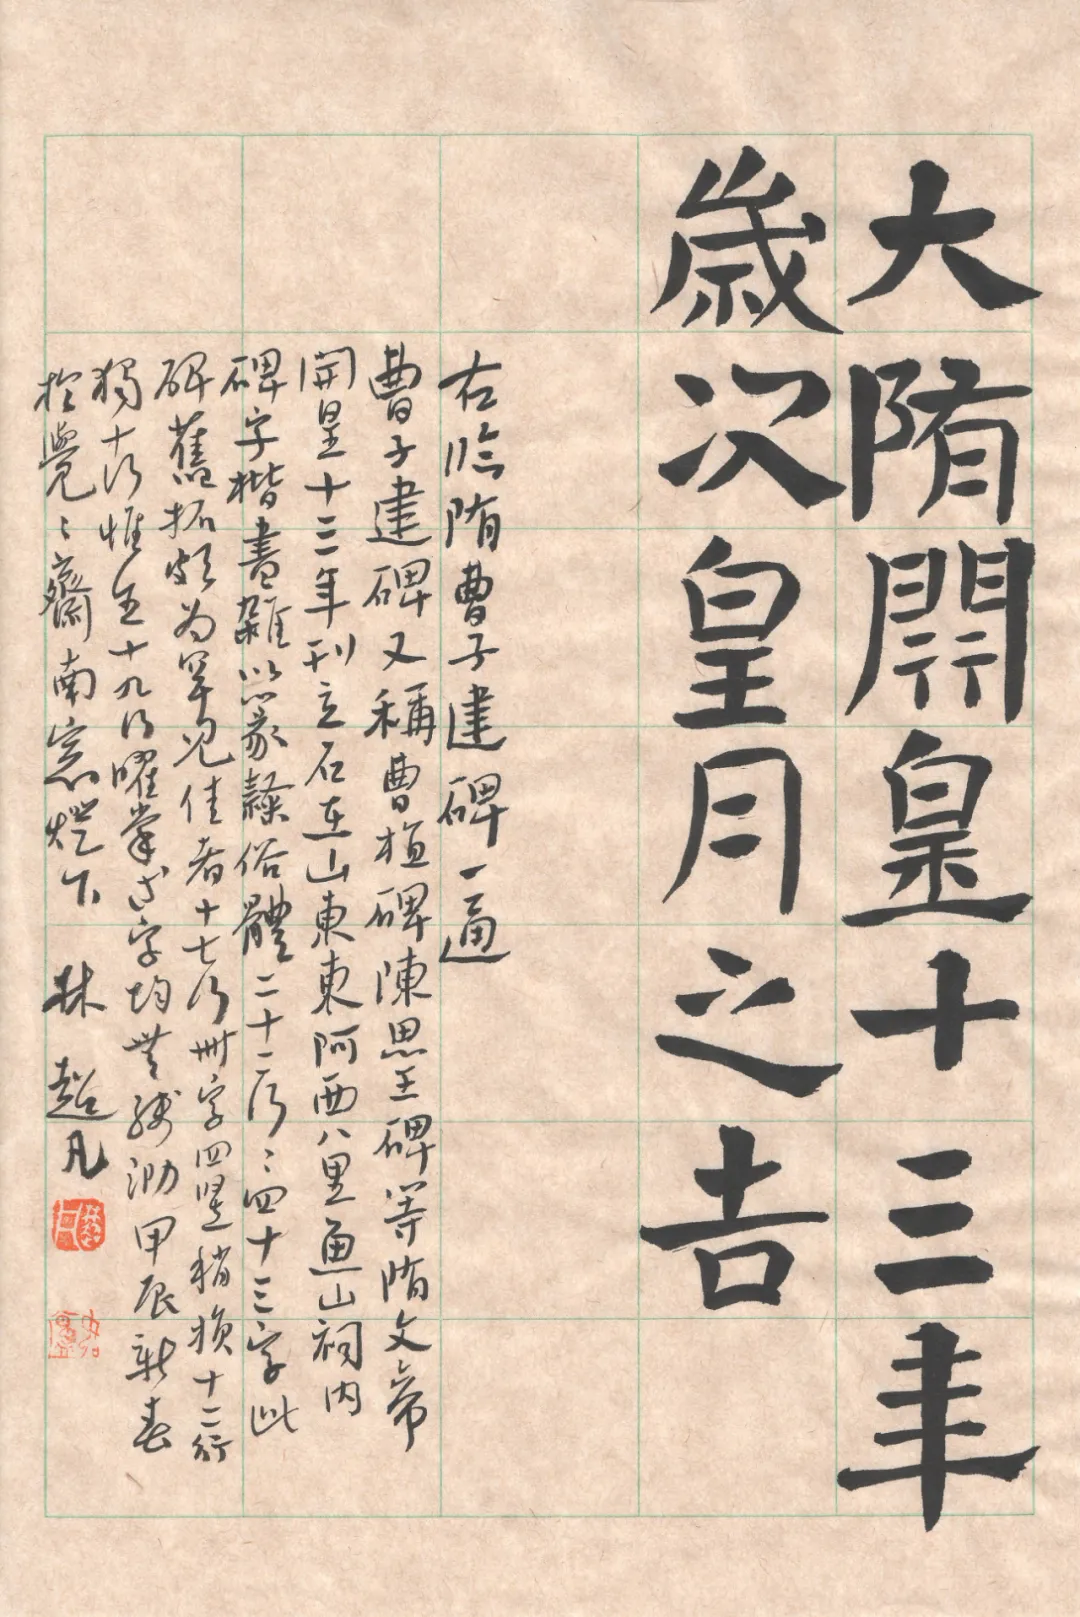 大隋開皇十三年
歲次皇月之吉
右临隋曹子建碑一通
曹子建碑又稱曹植碑陳思王碑等隋文帝
開皇十三年刊立石在山東東阿西八里魚山祠内
碑字楷書雜以篆隸俗體二十二行行四十三字此
碑舊拓頗为罕見佳者十七行卅字四竖稍損十二行
獨十行惟五十九行曜掌等字均無殘泐甲辰新春
於覺覺齋南窓燈下 林超凡